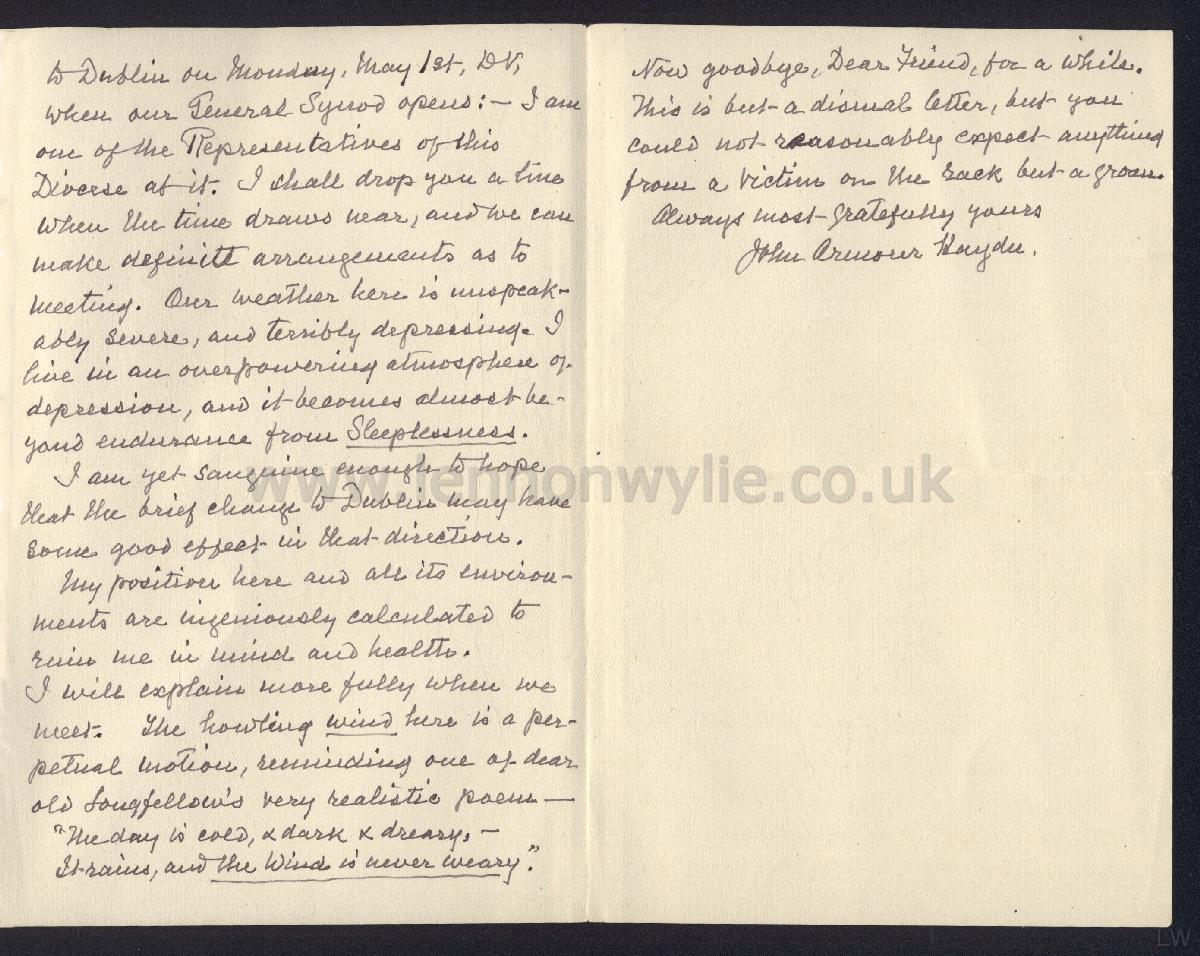 to Dublin on Monday, May 1st, D.V,
when our General Synod opens:— I am
one of the Representatives of this
Diocese at it. I shall drop you a line
when the time draws near, and we can
make definite arrangements as to
meeting. Our weather here is unspeak-
ably severe, and terribly depressing. I
live in an overpowering atmosphere of
depression, and it becomes almost be-
yond endurance from Sleeplessness.
I am yet sanguine enough to hope
that the brief change to Dublin may have
some good effect in that direction.
My position here and all its environ-
ments are ingeniously calculated to
ruin me in mind and health.
I will explain more fully when we
meet. The howling wind here is a per-
petual motion, reminding one of dear
old Longfellow's very realistic poem —
"The day is cold, & dark & dreary, —
It rains, and the Wind is never weary".
Now goodbye, Dear Friend, for a while.
This is but a dismal letter, but you
could not reasonably expect anything
from a victim on the rack but a groan.
Always most gratefully yours
John Armour Haydn.
www.lennonwylie.co.uk
LW